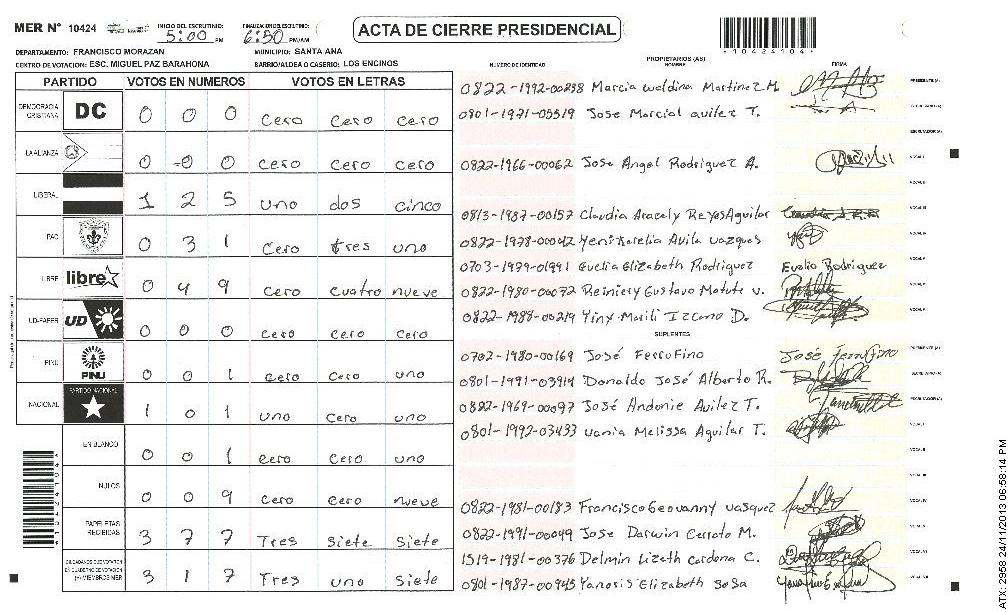 MER N° 10424 INICIO DEL ESCRUTINIO: 5:00 PM FINALIZACION DEL ESCRUTINIO: 6:50 PM/AM ACTA DE CIERRE PRESIDENCIAL
*10424104*
DEPARTAMENTO: FRANCISCO MORAZAN MUNICIPIO: SANTA ANA
CENTRO DE VOTACION: ESC. MIGUEL PAZ BARAHONA BARRIO/ALDEA O CASERIO: LOS ENCINOS
PARTIDO VOTOS EN NUMEROS VOTOS EN LETRAS
DEMOCRACIA CRISTIANA DC 0 0 0 Cero Cero Cero
LA ALIANZA 0 0 0 Cero Cero Cero
LIBERAL 1 2 5 uno dos cinco
PAC 0 3 1 Cero tres uno
LIBRE libre 0 4 9 Cero cuatro nueve
UD-FAPER UD 0 0 0 Cero Cero Cero
PINU PINU 0 0 1 Cero Cero uno
NACIONAL PARTIDO NACIONAL 1 0 1 uno Cero uno
EN BLANCO 0 0 1 Cero Cero uno
NULOS 0 0 9 Cero Cero nueve
PAPELETAS RECIBIDAS 3 7 7 Tres Siete Siete
CIUDADANOS QUE VOTARON EN CUADERNO DE VOTACION (+) MIEMBROS MER 3 1 7 Tres uno Siete
PROPIETARIOS (AS)
NUMERO DE IDENTIDAD NOMBRE FIRMA
0822-1992-00288 Marcia Waldina Martinez M. PRESIDENTE (A)
0801-1971-05519 Jose Marcial avilez T. SECRETARIO (A)
ESCRUTADOR (A)
0822-1966-00062 Jose Angel Rodriguez A. VOCAL I
VOCAL II
0813-1987-00157 Claudia Aracaly Reyes Aguilar VOCAL III
0822-1978-00042 Yeni Karelia Avila vazques VOCAL IV
0703-1979-01991 Evelia Elizabeth Rodriguez Evelia Rodriguez VOCAL V
0822-1980-00072 Reiniery Gustavo Matute v.
0822-1988-00219 Yiny Marili Izcano D.
SUPLENTES
0702-1980-00169 José Ferrufino José Ferrufino PRESIDENTE (A)
0801-1991-03914 Donaldo José Alberto R. SECRETARIO (A)
0822-1969-00097 José Andonie Avilez T. ESCRUTADOR (A)
0801-1992-03433 vania Melissa Aguilar T. VOCAL I
VOCAL II
VOCAL III
0822-1981-00183 Francisco Geovanny vasquez VOCAL IV
0822-1991-00049 Jose Darwin Cerrato M. VOCAL V
1519-1981-00376 Delmin Lizeth Cardona C. VOCAL VI
0801-1987-00945 Yanosis Elizabeth SoSa
ATX: 2958 24/11/2013 06:58:14 PM